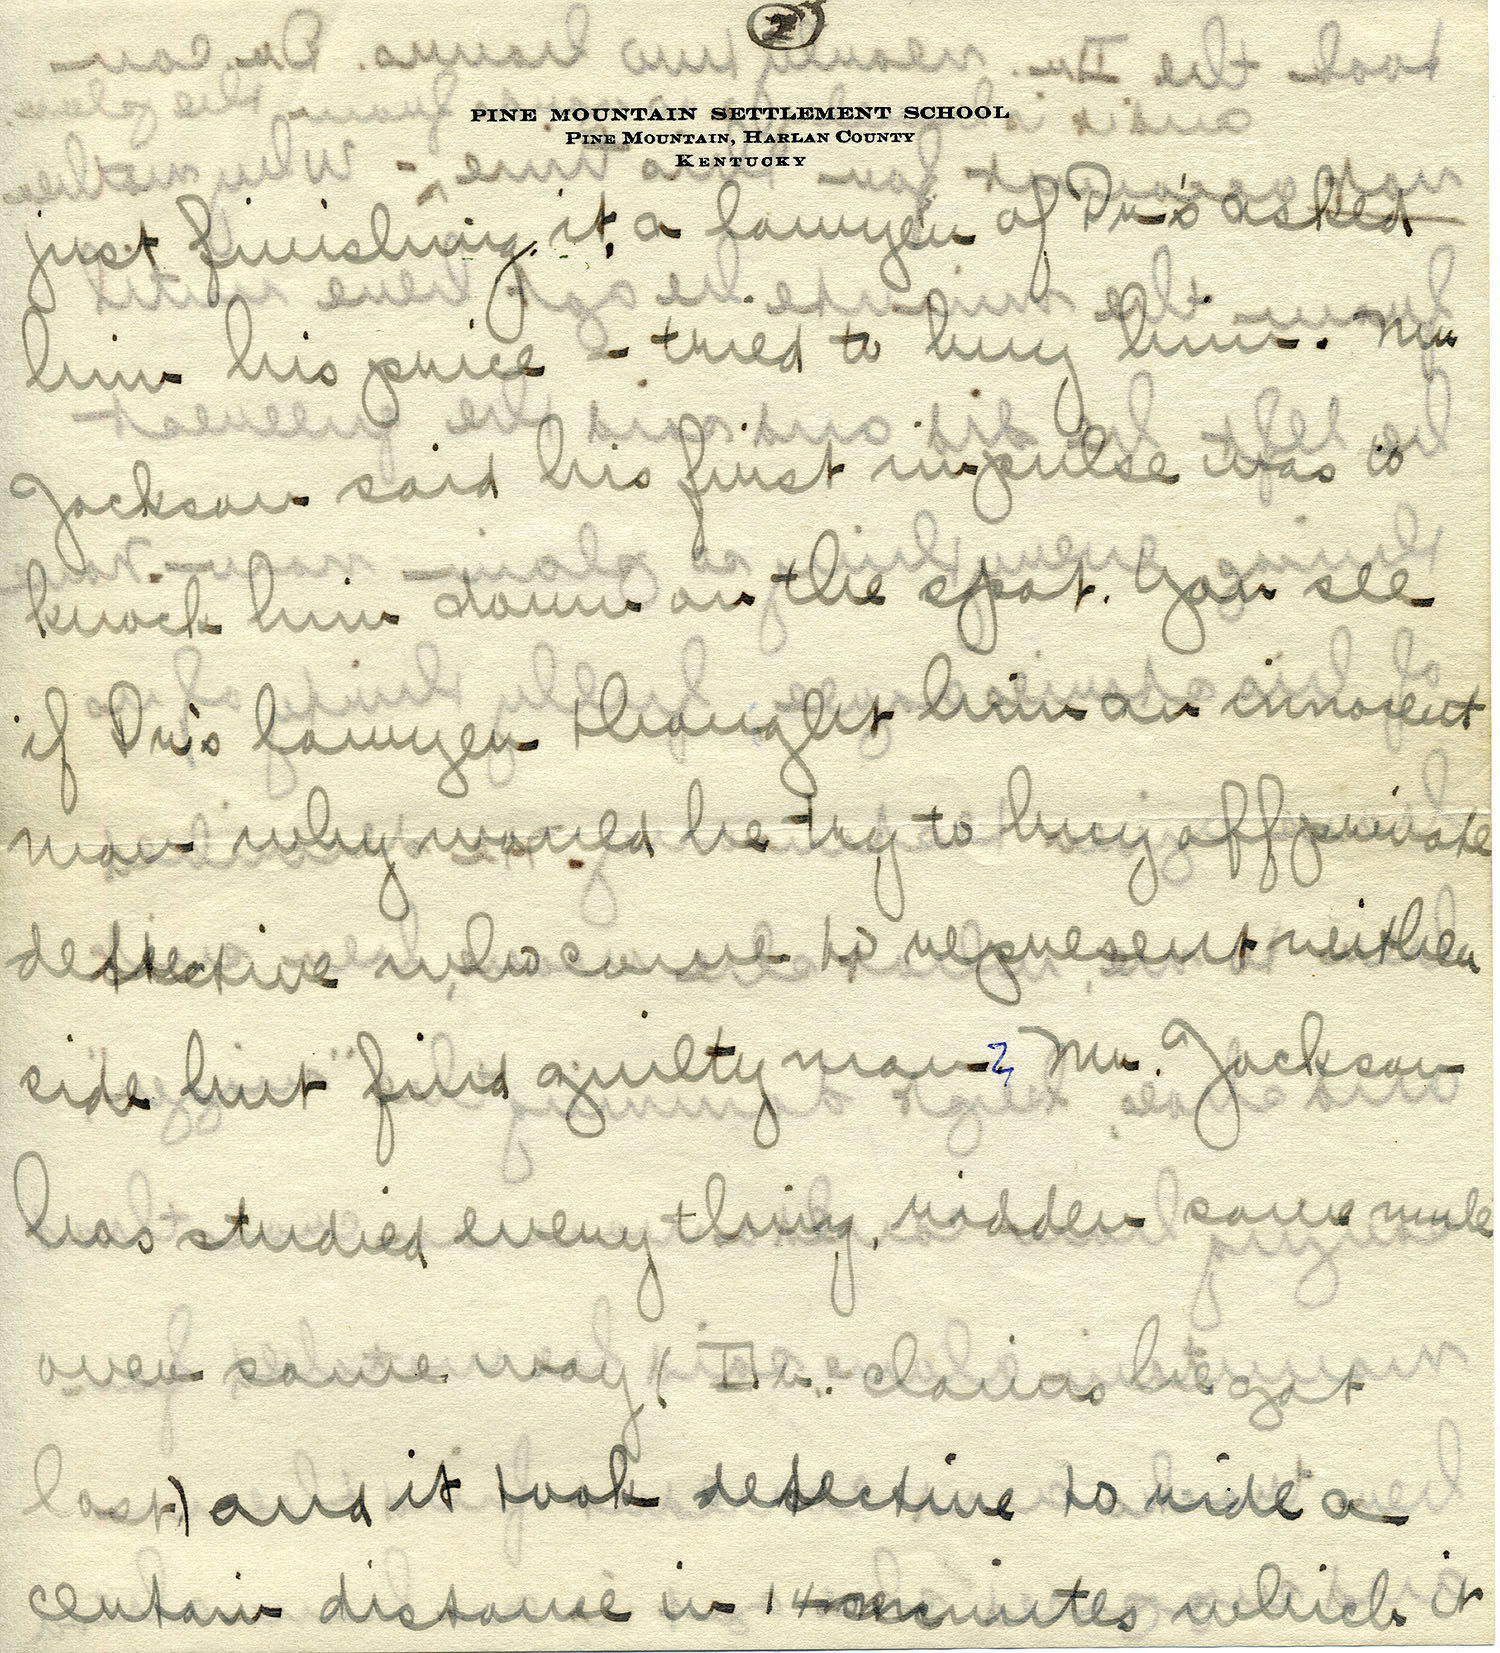 2
PINE MOUNTAIN SETTLEMENT SCHOOL
PINE MOUNTAIN, HARLAN COUNTY
KENTUCKY
just finishing it, a lawyer of Dr's asked
him his price - tried to buy him. Mr
Jackson said his first impulse was to
knock him down on the spot. You see
if Dr's lawyer thought him an innocent
man why would he try to buy off private
detective who came to represent neither
side but find guilty man? Mr. Jackson
has studied every thing, ridden same mule
over same way (Dr. claims he got
lost) and it took detective to ride a
certain distance in 14 minutes which it